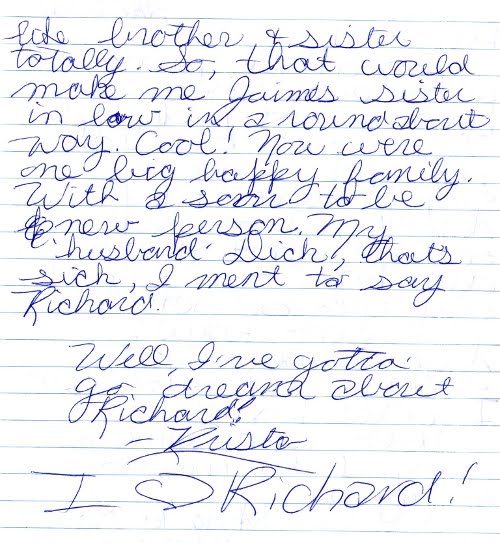 like brother & sister
totally. So, that would
make me Jaimes sister
in law in a roundabout
way. Cool! Now were
one big happy family.
With a soon to be
new person. My
husband Dick!, thats
sick, I ment to say
Richard.
Well, I've gotta
go dreamd about
Richard!
- Krista
I ♡ Richard!